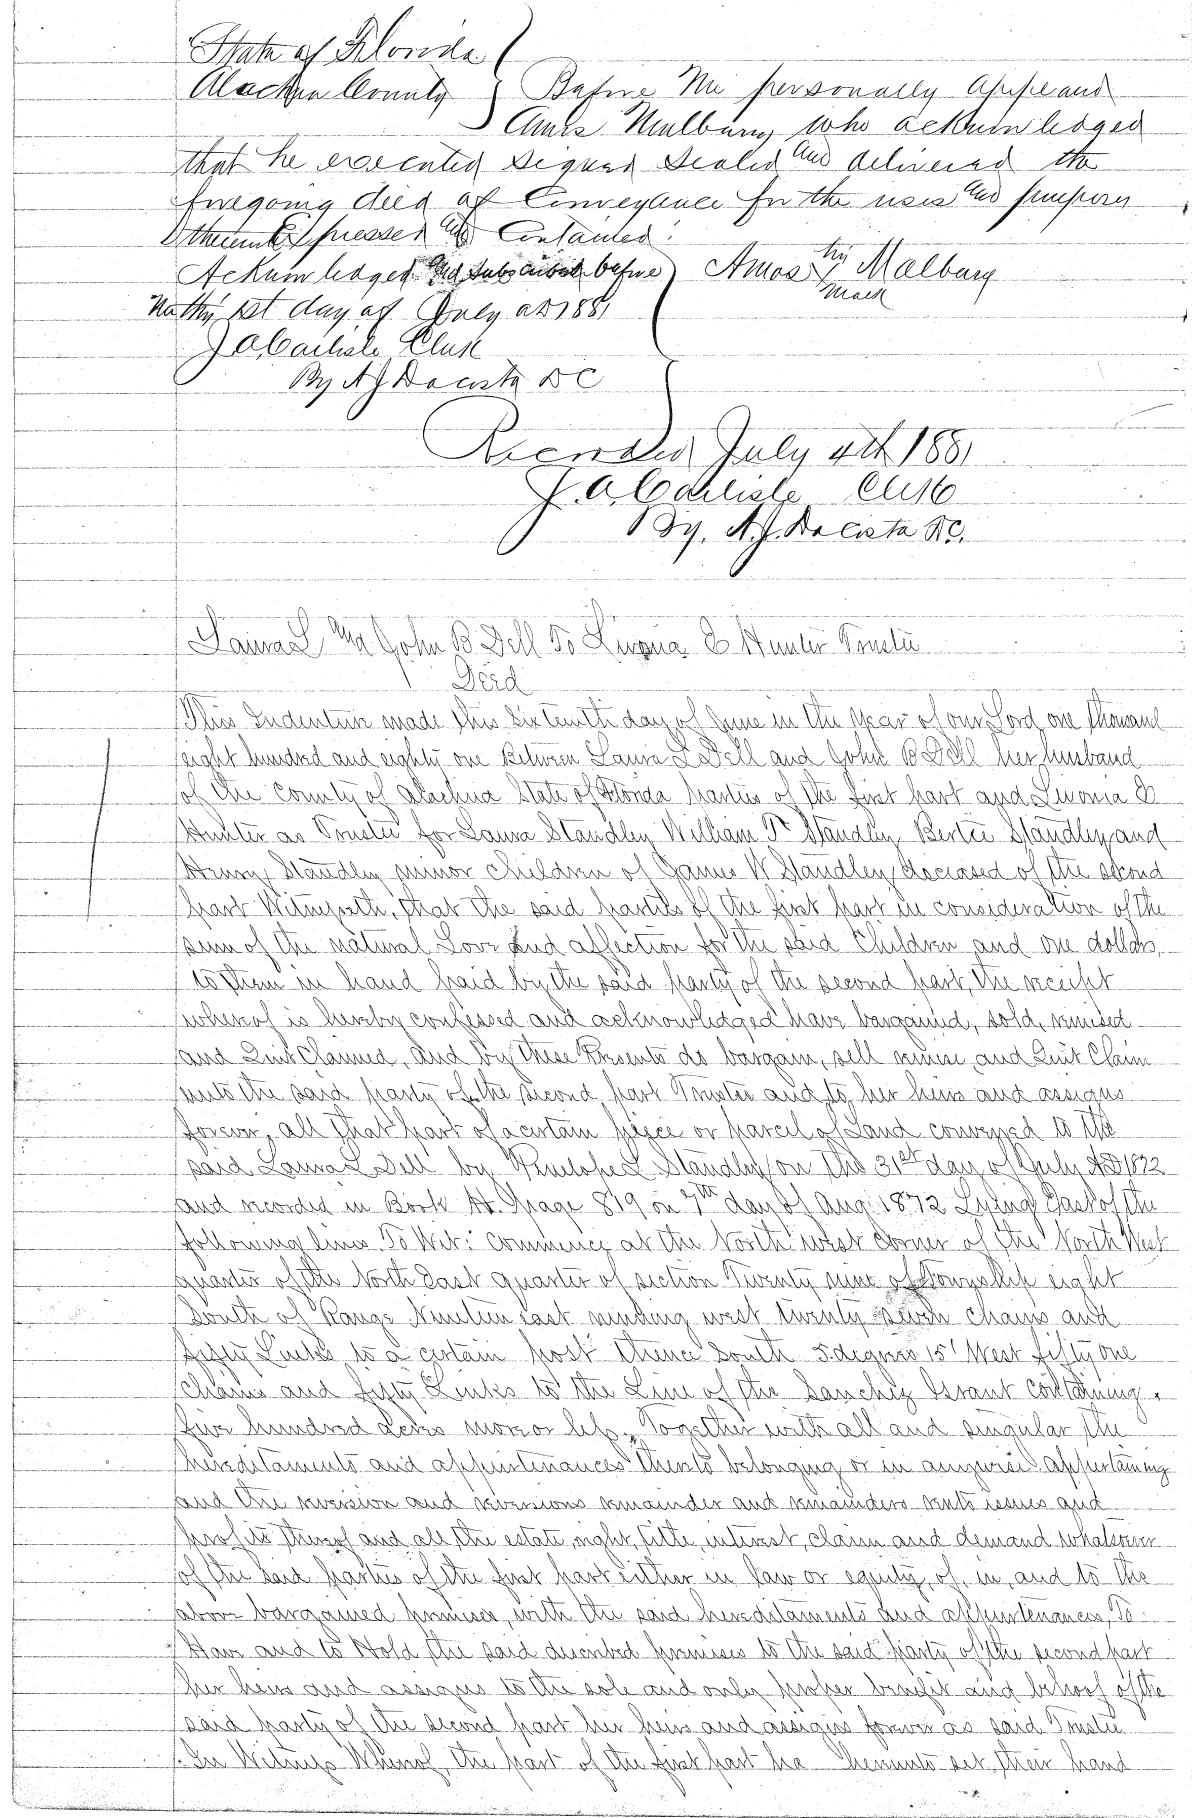 State of Florida
Alachua County } Before Me personally appeared
Amos Malbury who acknowledged
that he executed signed sealed and delivered the
foregoing deed of Conveyance for the uses and purposes
therein Expressed and Contained.
Acknowledged and subscribed before } Amos his Malbury
mark
Me this 1st day of July AD 1881
J. A. Carlisle Clerk
By A J Dacosta D C
Recorded July 4th 1881
J. A. Carlisle Clerk
By. A. J. Dacosta D.C.
Laura L and John B Dell To Livonia E Hunter Trustee
Deed
This Indenture made this Sixteenth day of June in the year of our Lord one thousand
eight hundred and eighty one Between Laura L Dell and John B Dell her husband
of the County of Alachua State of Florida parties of the first part and Livonia E
Hunter as Trustee for Laura Standley William T Standley Bertie Standley and
Henry Standley minor children of James W Standley deceased of the second
part Witnesseth, that the said parties of the first part in consideration of the
sum of the natural Love and affection for the said Children and one dollar,
to them in hand paid by the said party of the second part, the receipt
whereof is hereby confessed and acknowledged have bargained, sold, remised
and Quit Claimed, and by these Presents do bargain, sell remise, and Quit Claim
unto the said party of the second part Trustee and to her heirs and assigns
forever, all that part of a certain piece or parcel of Land conveyed to the
said Laura L Dell by Penelope L Standley on the 31st day of July AD 1872
and recorded in Book H. page 819 on 7th day of Aug 1872 Lying East of the
following lines To Wit: Commence at the North west Corner of the North West
quarter of the North East quarter of section Twenty nine of township eight
South of Range Nineteen east running west twenty seven chains and
fifty Links to a certain post thence South 5 degrees 15' West fifty one
chains and fifty Links to the Line of the Sanchez Grant containing.
five hundred acres more or less. Together with all and singular the
hereditaments and appurtenances thereto belonging or in anywise appertaining
and the reversion and reversions remainder and remainders rents issues and
profits thereof and all the estate, right, title, interest, claim and demand whatsoever
of the said parties of the first part either in law or equity, of, in, and to the
above bargained premises, with the said hereditaments and appurtenances, To
Have and to Hold the said described premises to the said party of the second part
her heirs and assigns to the sole and only proper benefit and behoof of the
said party of the second part her heirs and assigns forever as said Trustee
In Witness Whereof, the part of the first part ha hereunto set their hand